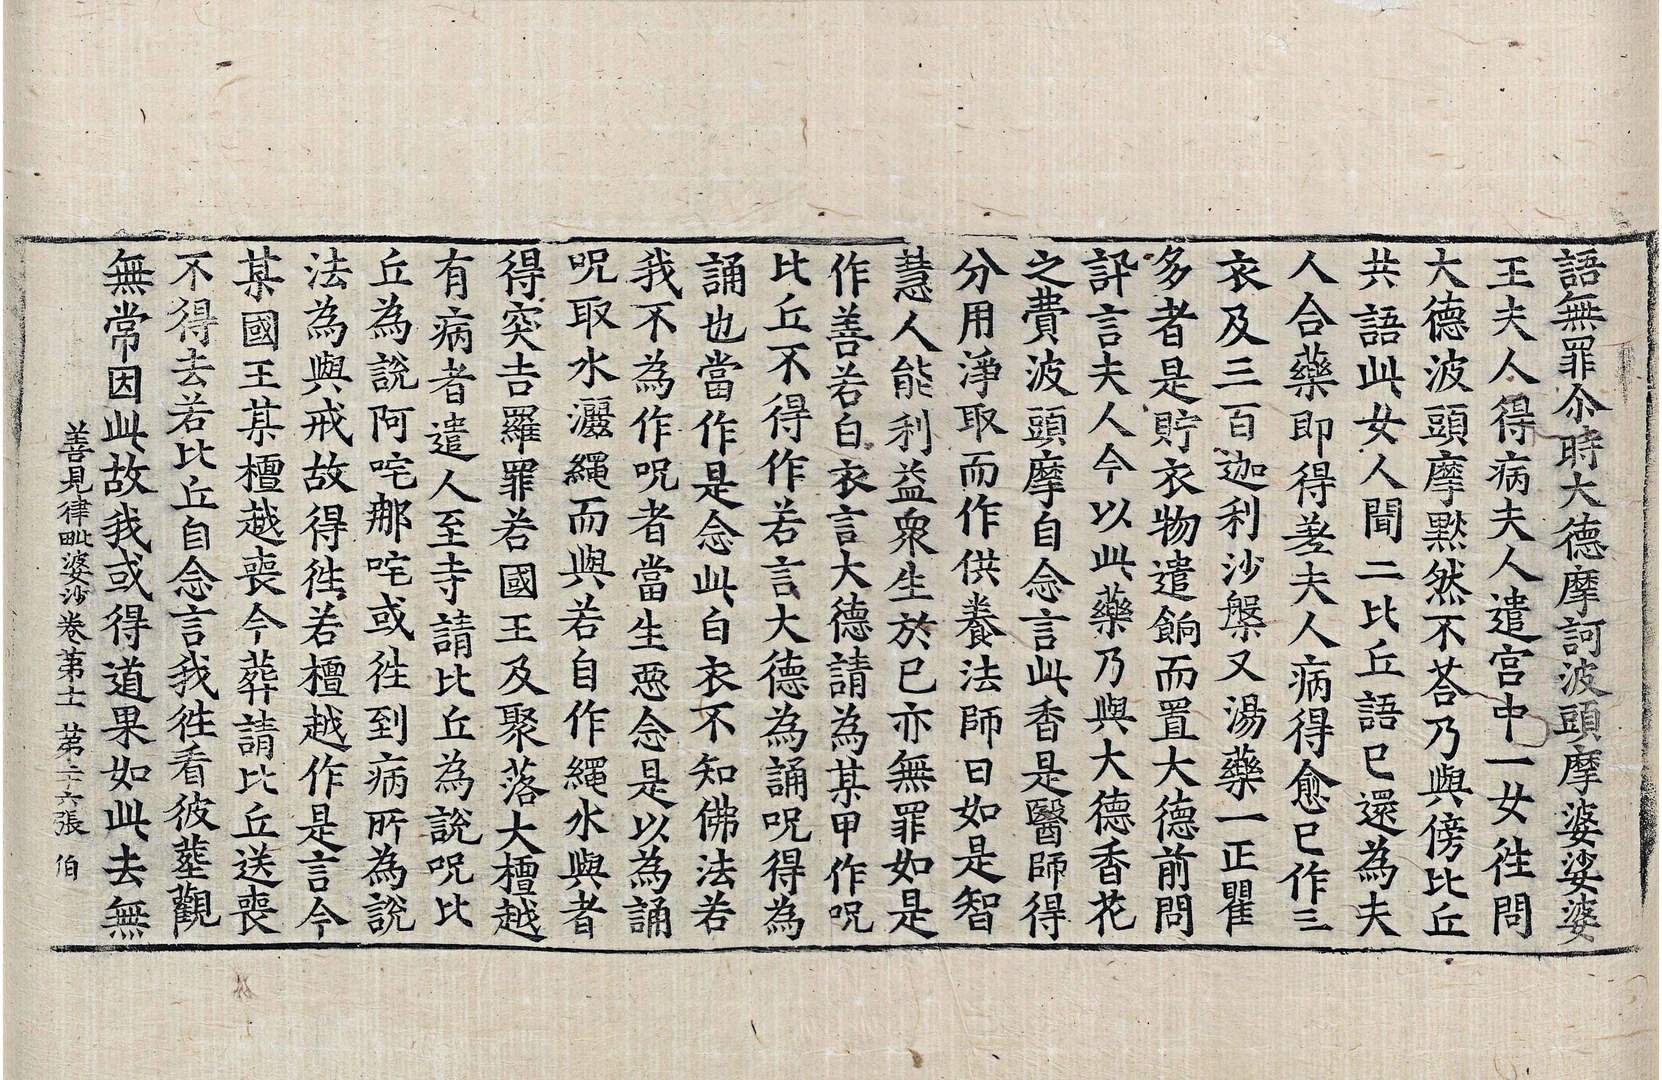 語無罪尒時大德摩訶波頭摩婆娑婆
王夫人得病夫人遣宮中一女徃問
大德波頭摩黙然不荅乃與傍比丘
共語此女人聞二比丘語已還為夫
人合藥即得差夫人病得愈已作三
衣及三百迦利沙槃又湯藥一正瞿
多者是貯衣物遣餉而置大德前問
訊言夫人今以此藥乃與大德香花
之費波頭摩自念言此香是醫師得
分用淨取而作供養法師曰如是智
慧人能利益衆生於已亦無罪如是
作善若白衣言大德請為某甲作呪
比丘不得作若言大德為誦呪得為
誦也當作是念此白衣不知佛法若
我不為作呪者當生惡念是以為誦
呪取水灑繩而與若自作繩水與者
得突吉羅罪若國王及聚落大檀越
有病者遣人至寺請比丘為說呪比
丘為說阿咤那咤或徃到病所為說
法為與戒故得徃若檀越作是言今
某國王某檀越喪今葬請比丘送喪
不得去若比丘自念言我徃看彼葬觀
無常因此故我或得道果如此去無
善見律毗婆沙卷第十一 第二十六張 伯